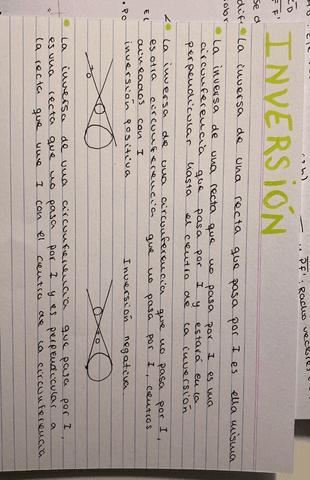 INVERSIÓN
La inversa de una recta que pasa por I es ella misma
La inversa de una recta que no pasa por I es una
circunferencia que pasa por I y estará en la
perpendicular hasta el centro de la inversión
La inversa de una circunferencia que no pasa por I,
es otra circunferencia que no pasa por I, centros
alineados con I
inversión positiva Inversión negativa
La inversa de una circunferencia que pasa por I,
es una recta que no pasa por I y es perpendicular a
la recta que une I con el centro de la circunferencia